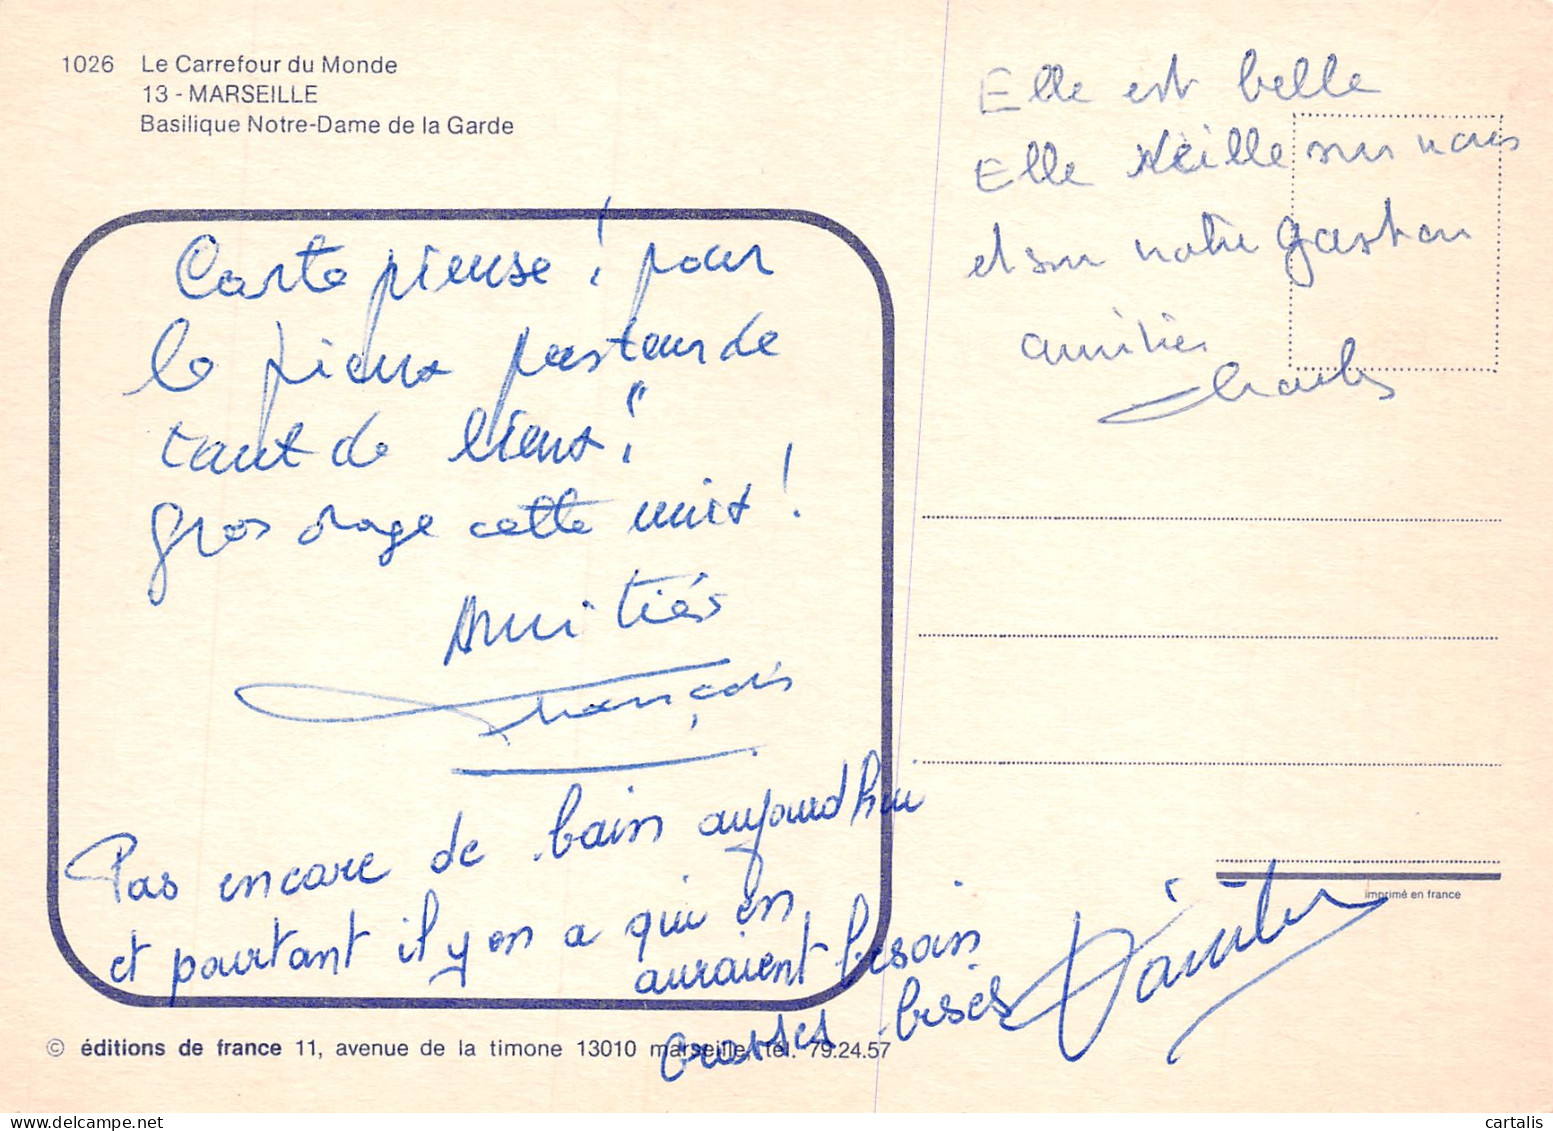 1026 Le Carrefour du Monde
13 - MARSEILLE
Basilique Notre-Dame de la Garde
Carte pieuse ! pour
le pieux pasteur de
tant de lieux !
gros orage cette nuit !
Amitiés
François
Pas encore de bain aujourd'hui
et pourtant il y en a qui en
auraient besoin
Grosses bises
Elle est belle
Elle veille sur nous
et sur notre gaston
amitiés
Charles
imprimé en france
© éditions de france 11, avenue de la timone 13010 marseille tél. 79.24.57
cartalis